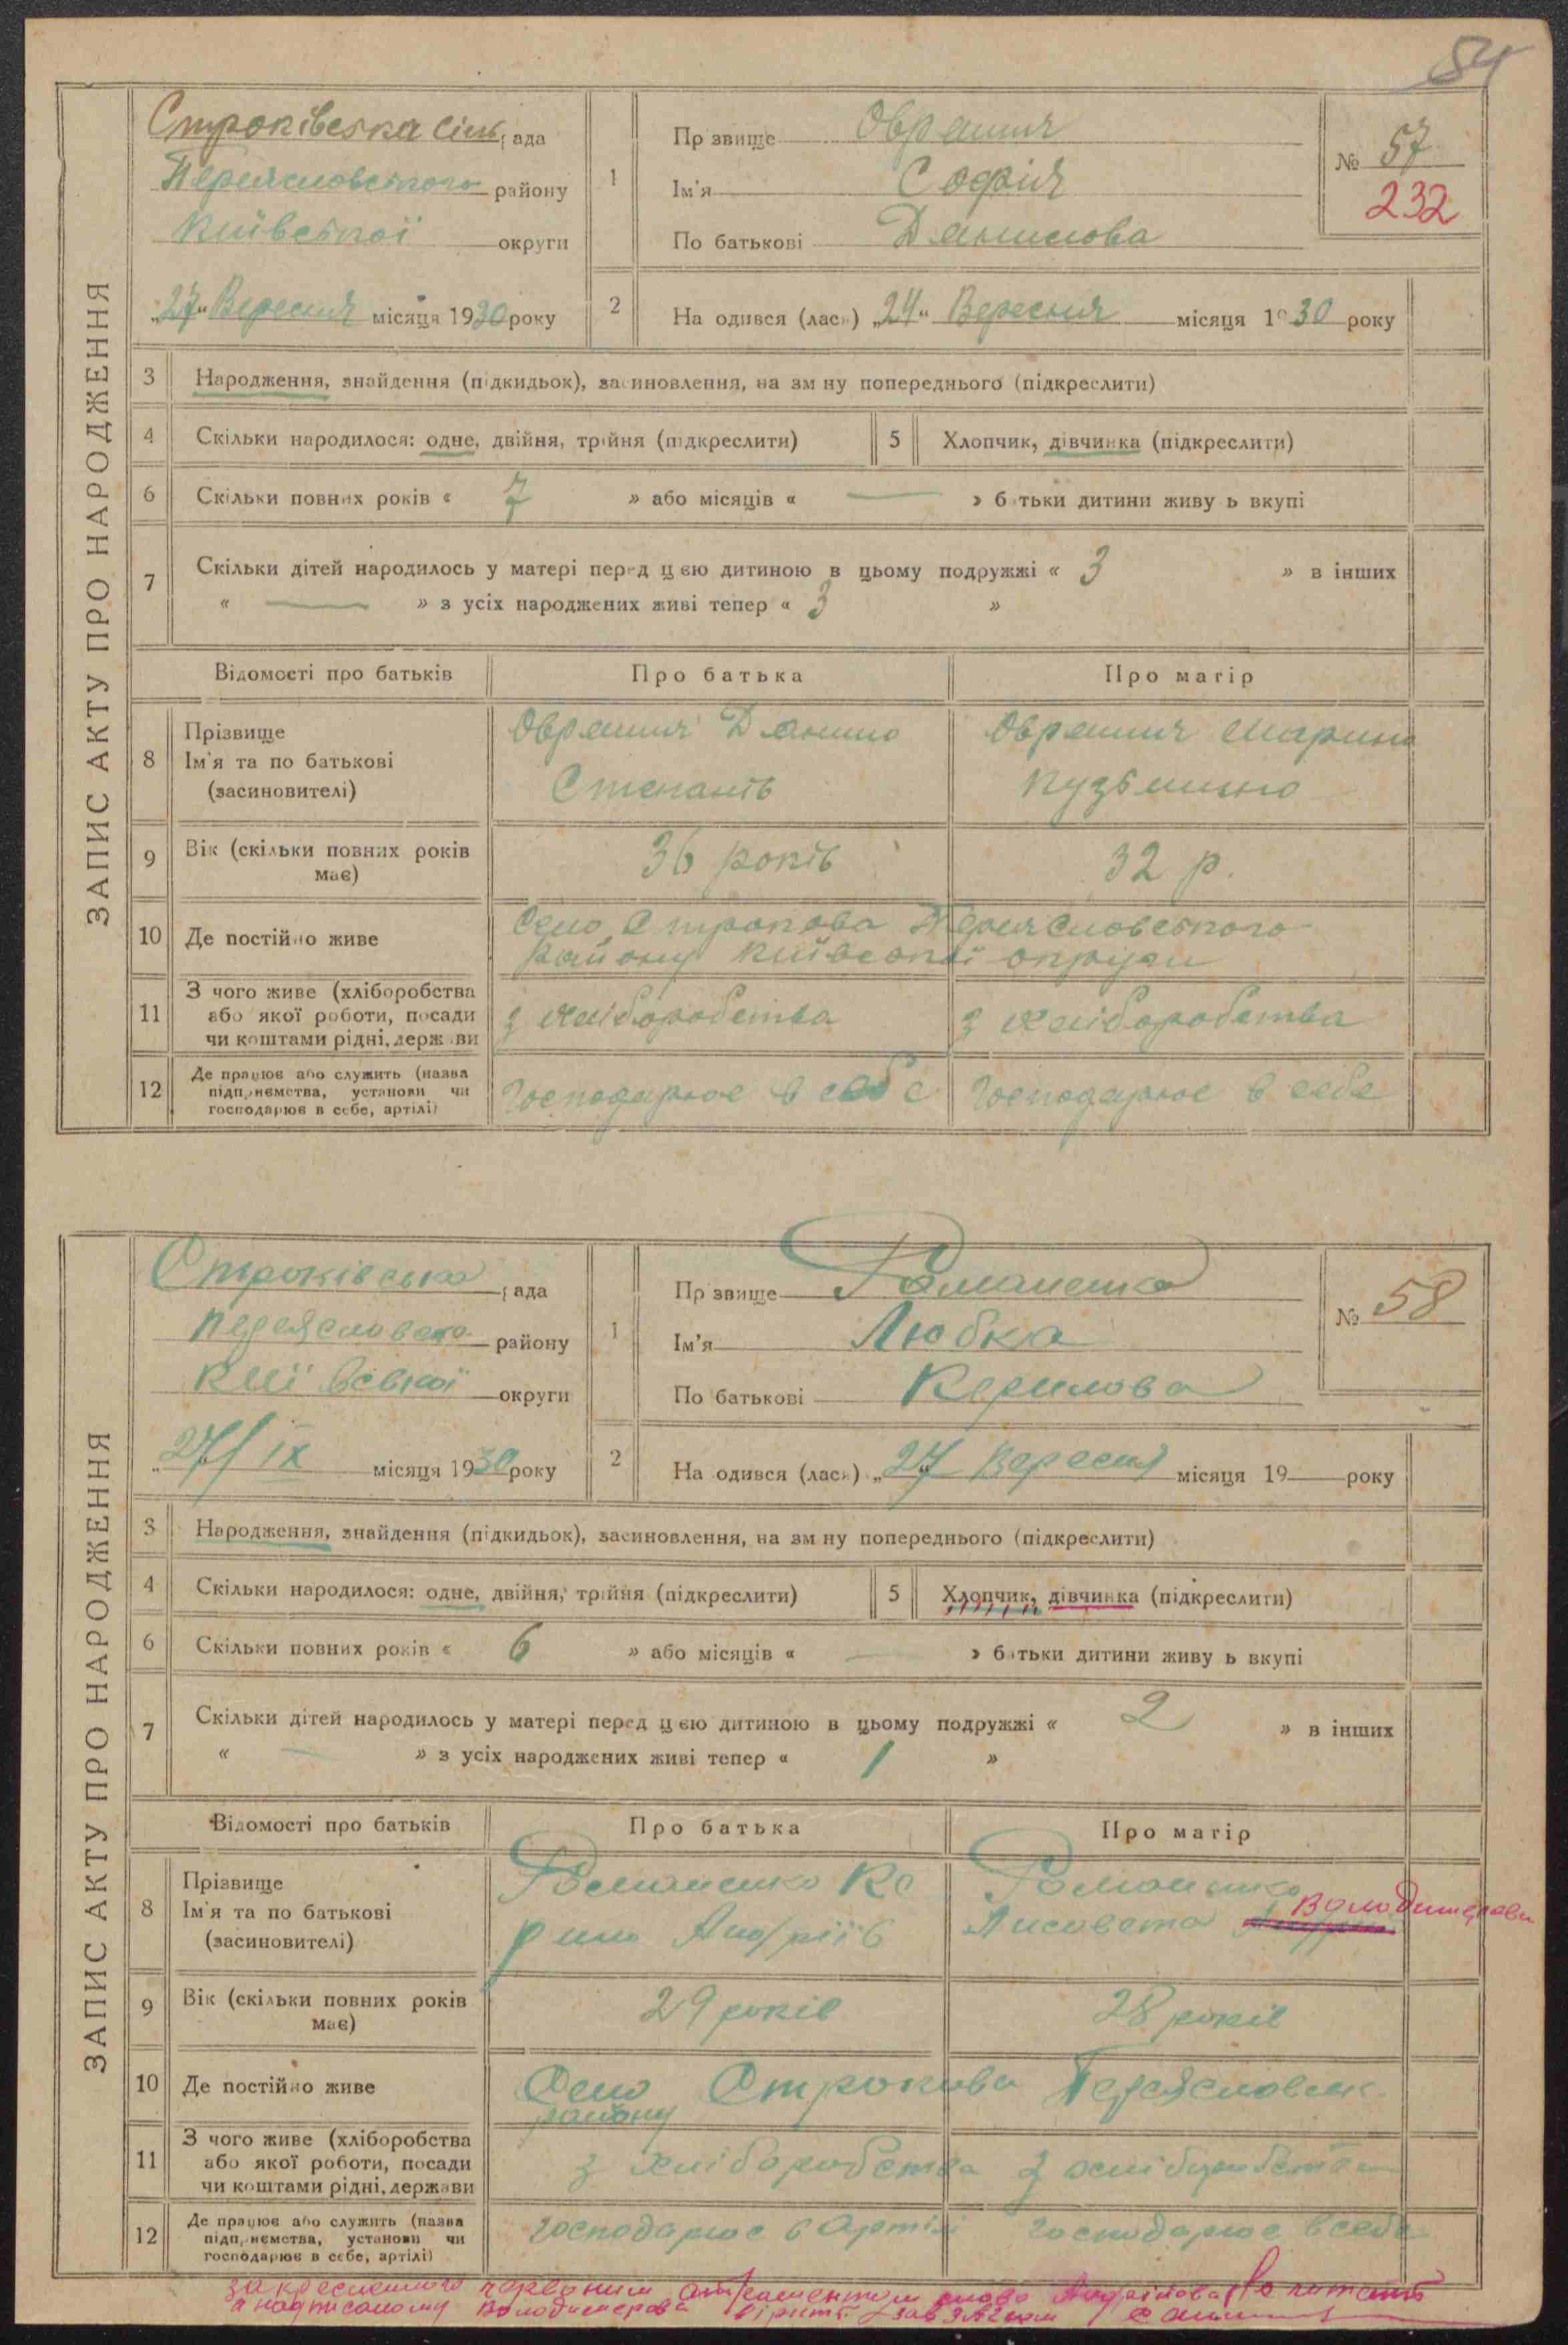 54
ЗАПИС АКТУ ПРО НАРОДЖЕННЯ
Строківська сіль рада
Переясловського району
Київської округи
„27“ Вересня місяця 1930 року
1
Прізвище Овраших
Ім'я Софія
По батькові Данилова
№ 57
232
2 Народився (лась) „24“ Вересня місяця 1930 року
3 Народження, знайдення (підкидьок), засиновлення, на зміну попереднього (підкреслити)
4 Скільки народилося: одне, двійня, трійня (підкреслити) 5 Хлопчик, дівчинка (підкреслити)
6 Скільки повних років « 7 » або місяців « — » батьки дитини живуть вкупі
7 Скільки дітей народилось у матері перед цею дитиною в цьому подружжі « 3 » в інших
« — » з усіх народжених живі тепер « 3 »
Відомості про батьків Про батька Про матір
8 Прізвище Ім'я та по батькові (засиновителі)
Данило
Степанів
Марина
Кузьмишно
9 Вік (скільки повних років має) 36 років 32 р.
10 Де постійно живе Село Строкова Переясловського
району Київської округи
11 З чого живе (хліборобства або якої роботи, посади чи коштами рідні, держави з хліборобства з хліборобства
12 Де працює або служить (назва підприємства, установи чи господарює в себе, артілі) Господарює в себе Господарює в себе
ЗАПИС АКТУ ПРО НАРОДЖЕННЯ
Строківська рада
Переясловсько району
Київської округи
„27/IX місяця 1930 року
1
Прізвище Романенко
Ім'я Любка
По батькові Керилова
№ 58
2 Народився (лась) „27“ Вересня місяця 19— року
3 Народження, знайдення (підкидьок), засиновлення, на зміну попереднього (підкреслити)
4 Скільки народилося: одне, двійня, трійня (підкреслити) 5 Хлопчик, дівчинка (підкреслити)
6 Скільки повних років « 6 » або місяців « — » батьки дитини живуть вкупі
7 Скільки дітей народилось у матері перед цею дитиною в цьому подружжі « 2 » в інших
« — » з усіх народжених живі тепер « 1 »
Відомості про батьків Про батька Про матір
8 Прізвище Ім'я та по батькові (засиновителі)
Романенко Ке
рило Андріїв
Романенко
Лисовета Володимерова
9 Вік (скільки повних років має) 29 років 28 років
10 Де постійно живе Село Строкова Переясловськ.
району
11 З чого живе (хліборобства або якої роботи, посади чи коштами рідні, держави з хліборобства з хліборобства
12 Де працює або служить (назва підприємства, установи чи господарює в себе, артілі) господарює в Артілі господарює в себе
закресленного червоним атраментом слово Андріїова
а надписаному Володимерова вірить зав ЗАГСом